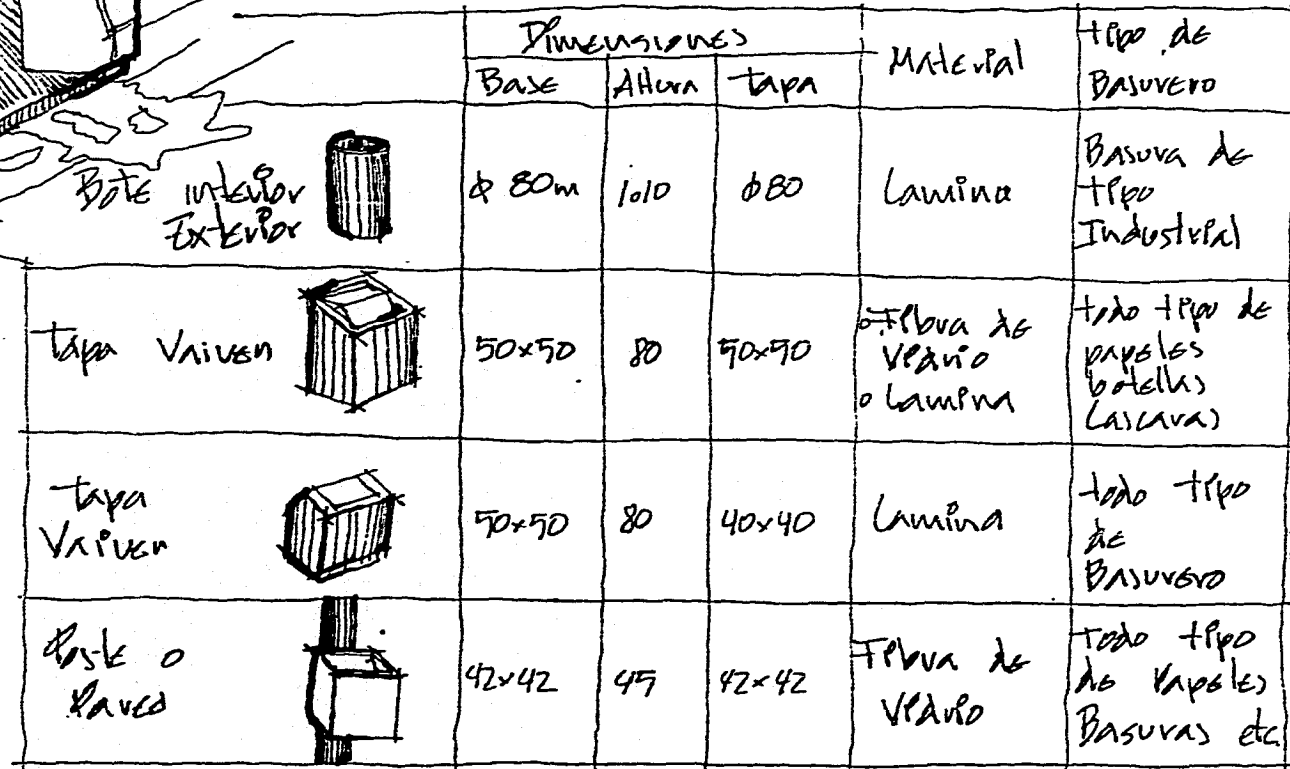 Dimensiones
Material
tipo de
Basurero
Base
Altura
tapa
Bote interior
Exterior
φ 80m
1.10
φ80
Lamina
Basura de
tipo
Industrial
tapa Vaiven
50x50
80
50x50
o Fibra de
Vidrio
o Lamina
todo tipo de
papeles
botellas
Cascaras
tapa
Vaiven
50x50
80
40x40
Lamina
todo tipo
de
Basurero
Poste o
Pared
42x42
45
42x42
Fibra de
Vidrio
Todo tipo
de Papeles
Basuras etc